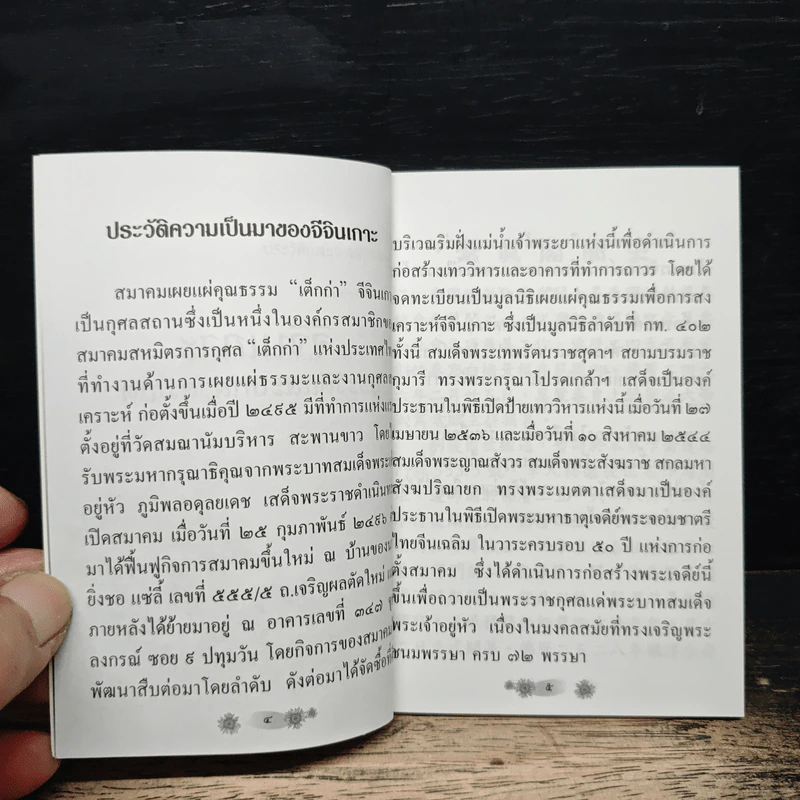 ประวัติความเป็นมาของจีจินเกาะ
สมาคมเผยแผ่คุณธรรม “เต็กก่า” จีจินเกาะ
เป็นกุศลสถานซึ่งเป็นหนึ่งในองค์กรสมาชิกของ
สมาคมสหมิตรการกุศล “เต็กก่า” แห่งประเทศไทย
ที่ทำงานด้านการเผยแผ่ธรรมะและงานกุศล
เคราะห์ ก่อตั้งขึ้นเมื่อปี ๒๔๙๕ มีที่ทำการแห่งแรก
ตั้งอยู่ที่วัดสมณานัมบริหาร สะพานขาว โดย
รับพระมหากรุณาธิคุณจากพระบาทสมเด็จพระ
อยู่หัว ภูมิพลอดุลยเดช เสด็จพระราชดำเนิน
เปิดสมาคม เมื่อวันที่ ๒๕ กุมภาพันธ์ ๒๔๙๖
มาได้ฟื้นฟูกิจการสมาคมขึ้นใหม่ ณ บ้านของ
ยิ่งชอ แซ่ลี้ เลขที่ ๕๕๕/๕ ถ.เจริญผลตัดใหม่
ภายหลังได้ย้ายมาอยู่ ณ อาคารเลขที่ ๓๔๗
ลงกรณ์ ซอย ๙ ปทุมวัน โดยกิจการของสมาคม
พัฒนาสืบต่อมาโดยลำดับ ดังต่อมาได้จัดซื้อที่
๔
บริเวณริมฝั่งแม่น้ำเจ้าพระยาแห่งนี้เพื่อดำเนินการ
ก่อสร้างเทววิหารและอาคารที่ทำการถาวร โดยได้
จดทะเบียนเป็นมูลนิธิเผยแผ่คุณธรรมเพื่อการสง
เคราะห์จีจินเกาะ ซึ่งเป็นมูลนิธิลำดับที่ กท. ๔๐๒
ทั้งนี้ สมเด็จพระเทพรัตนราชสุดาฯ สยามบรมราช
กุมารี ทรงพระกรุณาโปรดเกล้าฯ เสด็จเป็นองค์
ประธานในพิธีเปิดป้ายเทววิหารแห่งนี้ เมื่อวันที่ ๒๗
เมษายน ๒๕๓๖ และเมื่อวันที่ ๑๐ สิงหาคม ๒๕๔๔
สมเด็จพระญาณสังวร สมเด็จพระสังฆราช สกลมหา
สังฆปริณายก ทรงพระเมตตาเสด็จมาเป็นองค์
ประธานในพิธีเปิดพระมหาธาตุเจดีย์พระจอมชาตรี
ไทยจีนเฉลิม ในวาระครบรอบ ๕๐ ปี แห่งการก่อ
ตั้งสมาคม ซึ่งได้ดำเนินการก่อสร้างพระเจดีย์นี้
ขึ้นเพื่อถวายเป็นพระราชกุศลแด่พระบาทสมเด็จ
พระเจ้าอยู่หัว เนื่องในมงคลสมัยที่ทรงเจริญพระ
ชนมพรรษา ครบ ๗๒ พรรษา
๕